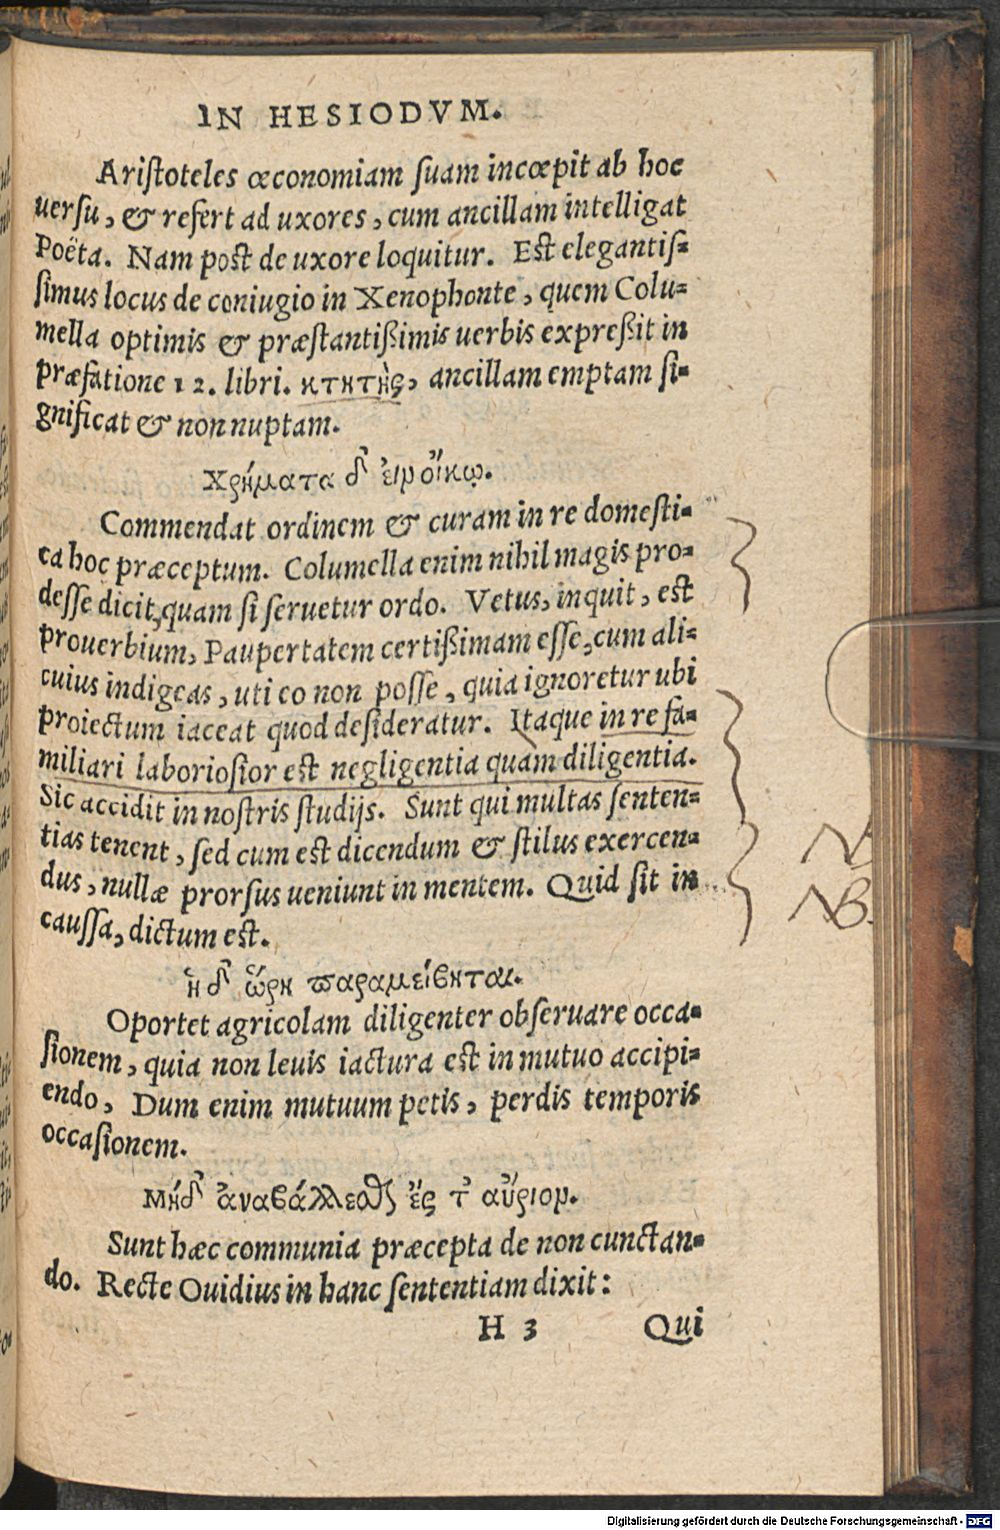 IN HESIODVM.
Aristoteles œconomiam suam incœpit ab hoc
uersu, & refert ad uxores, cum ancillam intelligat
Poëta. Nam post de uxore loquitur. Est elegantis=
simus locus de coniugio in Xenophonte, quem Colu=
mella optimis & præstantißimis uerbis expreßit in
præfatione 12. libri. κτητὴς, ancillam emptam si=
gnificat & non nuptam.
Χρήματα δ' εἰν οἴκῳ.
Commendat ordinem & curam in re domesti=
ca hoc præceptum. Columella enim nihil magis pro=
desse dicit, quam si seruetur ordo. Vetus, inquit, est
prouerbium, Paupertatem certißimam esse, cum ali=
cuius indigeas, uti eo non posse, quia ignoretur ubi
proiectum iaceat quod desideratur. Itaque in re fa=
miliari laboriosior est negligentia quam diligentia.
Sic accidit in nostris studijs. Sunt qui multas senten=
tias tenent, sed cum est dicendum & stilus exercen=
dus, nullæ prorsus ueniunt in mentem. Quid sit in
caussa, dictum est.
NB.
ἡ δ' ὥρη παραμείβηται.
Oportet agricolam diligenter obseruare occa=
sionem, quia non leuis iactura est in mutuo accipi=
endo, Dum enim mutuum petis, perdis temporis
occasionem.
Μηδ' ἀναβάλλεσθ ἔς τ' αὔριον.
Sunt hæc communia præcepta de non cunctan=
do. Recte Ouidius in hanc sententiam dixit:
H 3 Qui
Digitalisierung gefördert durch die Deutsche Forschungsgemeinschaft - DFG